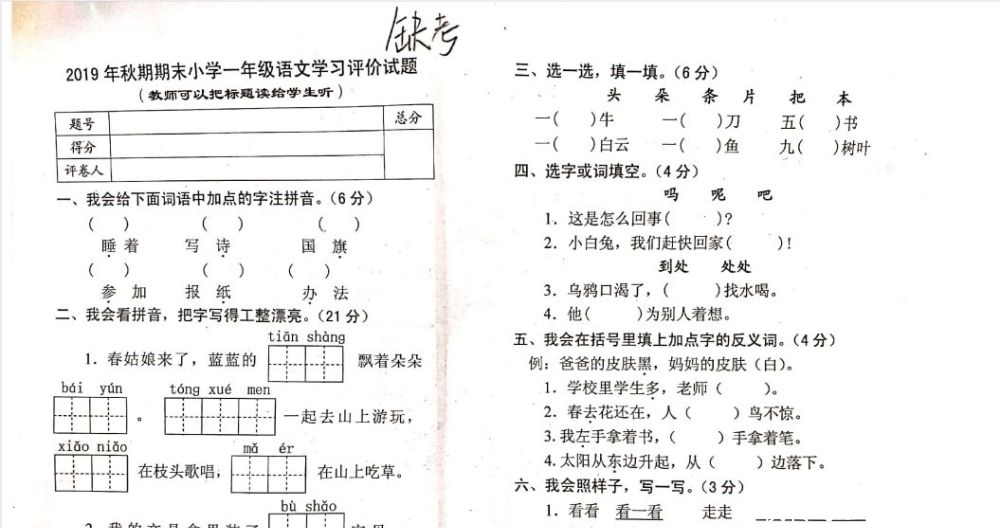 缺考
2019年秋期期末小学一年级语文学习评价试题
(教师可以把标题读给学生听)
题号 总分
得分
评卷人
一、我会给下面词语中加点的字注拼音。(6分)
( ) ( ) ( )
睡着 写诗 国旗
( ) ( ) ( )
参加 报纸 办法
二、我会看拼音，把字写得工整漂亮。(21分)
tiān shàng
1. 春姑娘来了，蓝蓝的 飘着朵朵
bái yún tóng xué men
。 一起去山上游玩，
xiǎo niǎo mǎ ér
在枝头歌唱， 在山上吃草。
bù shǎo
三、选一选，填一填。(6分)
头 朵 条 片 把 本
一( )牛 一( )刀 五( )书
一( )白云 一( )鱼 九( )树叶
四、选字或词填空。(4分)
吗 呢 吧
1. 这是怎么回事( )?
2. 小白兔，我们赶快回家( )!
到处 处处
3. 乌鸦口渴了，( )找水喝。
4. 他( )为别人着想。
五、我会在括号里填上加点字的反义词。(4分)
例：爸爸的皮肤黑，妈妈的皮肤(白)。
1. 学校里学生多，老师( )。
2. 春去花还在，人( )鸟不惊。
3. 我左手拿着书，( )手拿着笔。
4. 太阳从东边升起，从( )边落下。
六、我会照样子，写一写。(3分)
1. 看看 看一看 走走